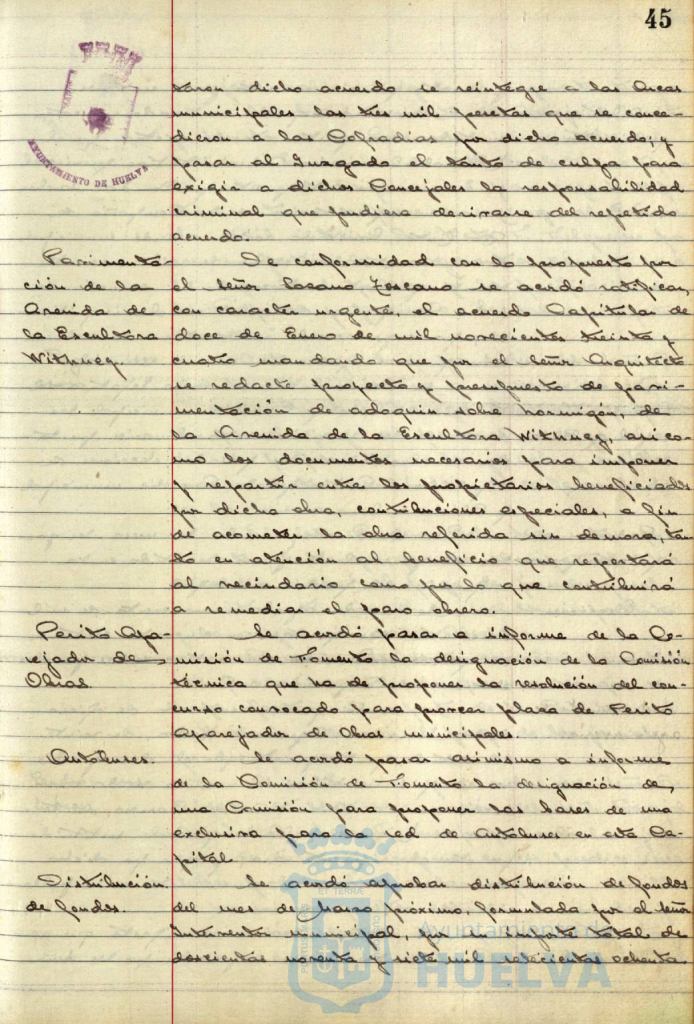 45
AYUNTAMIENTO DE HUELVA
taron dicho acuerdo se reintegre a las Arcas
municipales las tres mil pesetas que se conce-
dieron a las Cofradías por dicho acuerdo; y
pasar al Juzgado el tanto de culpa para
exigir a dichos Concejales la responsabilidad
criminal que pudiera derivarse del repetido
acuerdo.
Pavimenta-
ción de la
Avenida de
la Escultora
Withney.
De conformidad con lo propuesto por
el Señor Lozano Toscano se acordó ratificar,
con caracter urgente, el acuerdo Capitular de
doce de Enero de mil novecientos treinta y
cuatro mandando que por el Señor Arquitecto
se redacte proyecto y presupuesto de pavi-
mentación de adoquin sobre hormigón, de
la Avenida de la Escultora Withney, así co-
mo los documentos necesarios para imponer
y repartir entre los propietarios beneficiados
por dicha obra, contribuciones especiales, a fin
de acometer la obra referida sin demora, tan-
to en atención al beneficio que reportará
al vecindario como por lo que contribuirá
a remediar el paro obrero.
Perito Apa-
rejador de
Obras
Se acordó pasar a informe de la Co-
misión de Fomento la designación de la Comisión
técnica que ha de proponer la resolución del con-
curso convocado para proveer plaza de Perito
Aparejador de Obras municipales.
Autobuses.
Se acordó pasar asimismo a informe
de la Comisión de Fomento la designación de
una Comisión para proponer las bases de una
exclusiva para la red de Autobuses en esta Ca-
pital
Distribución
de fondos.
Se acordó aprobar distribución de fondos
del mes de Marzo próximo, formulada por el Señor
Interventor municipal, por un importe total de
doscientas noventa y siete mil setecientos ochenta
Ayuntamiento de
HUELVA